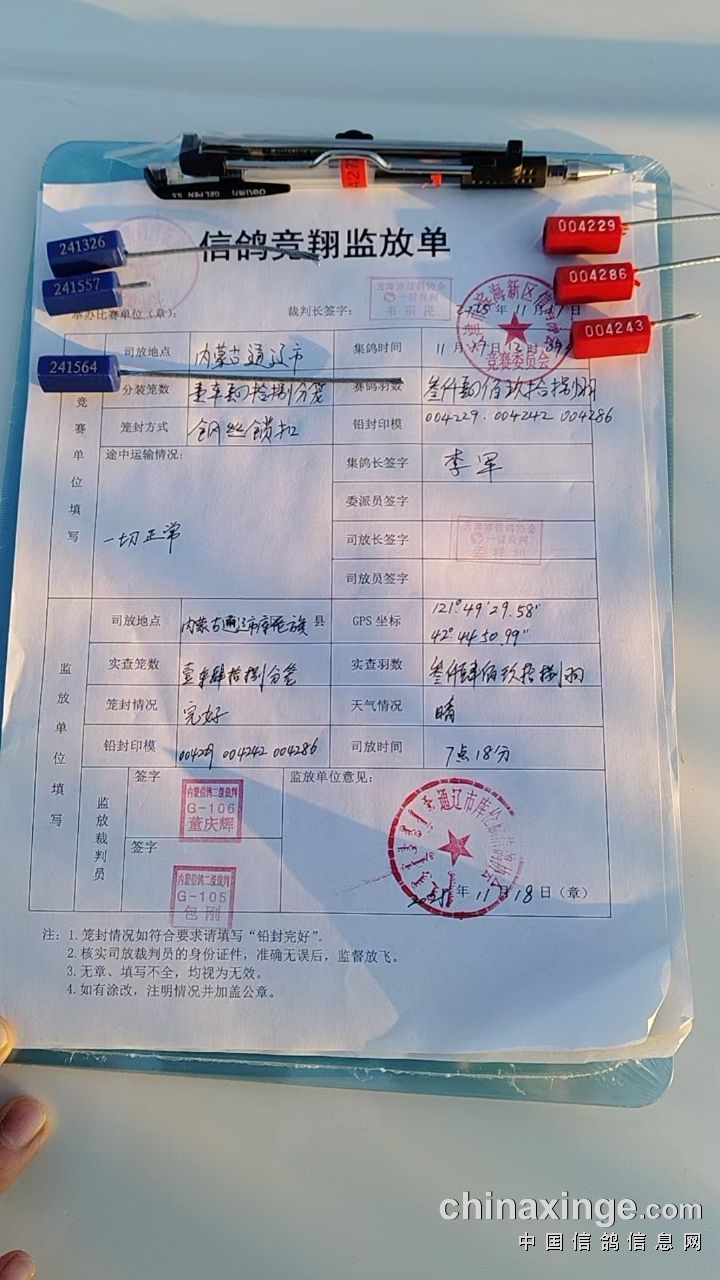 241326
241557
241564
004229
004286
004243
信鸽竞翔监放单
举办比赛单位（章）：
裁判长签字：
2025年11月17日
天津市信鸽协会
一级裁判
韦宗民
滨海新区信
竞赛委员会
竞赛单位填写
司放地点 内蒙古通辽市
集鸽时间 11月17日12时
分装笼数 壹车肆拾捌分笼
赛鸽羽数 叁仟肆佰玖拾捌羽
笼封方式 钢丝锁扣
铅封印模 004229.004242 004286
途中运输情况：
一切正常
集鸽长签字 李军
委派员签字
司放长签字
天津市信鸽协会
一级裁判
司放员签字
监放单位填写
司放地点 内蒙古通辽市库伦旗县
GPS坐标 121°49′29.58″
42°44′50.99″
实查笼数 壹车肆拾捌分笼
实查羽数 叁仟肆佰玖拾捌羽
笼封情况 完好
天气情况 晴
铅封印模 004229 004242 004286
司放时间 7点18分
监放裁判员
签字
内蒙信鸽二级裁判
G-106
董庆辉
签字
内蒙信鸽二级裁判
G-105
包刚
监放单位意见：
通辽市库伦旗信鸽协会
2025年11月18日（章）
注：1.笼封情况如符合要求请填写“铅封完好”。
2.核实司放裁判员的身份证件，准确无误后，监督放飞。
3.无章、填写不全，均视为无效。
4.如有涂改，注明情况并加盖公章。
chinaxinge.com
中国信鸽信息网